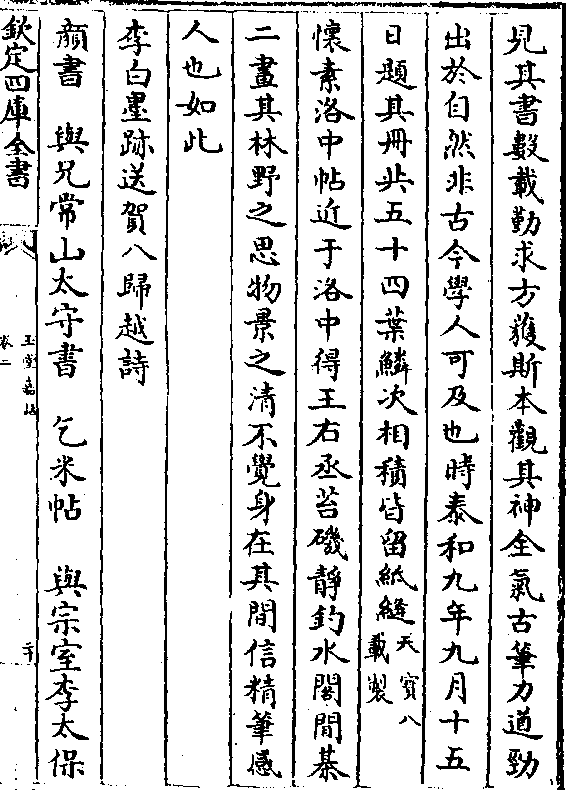 見其書數載勤求方獲斯本觀其神全氣古筆力遒勁
出於自然非古今學人可及也時泰和九年九月十五
日題其冊共五十四葉鱗次相積皆留紙縫天寳八載製
懷素洛中帖近于洛中得王右丞苔磯靜釣水閣閒棊
二畫其林野之思物景之清不覺身在其間信精筆感
人也如此
李白墨跡送賀八歸越詩
顔書　與兄常山太守書　乞米帖　與宗室李太保
欽定四庫全書
玉堂嘉話
卷二
二十